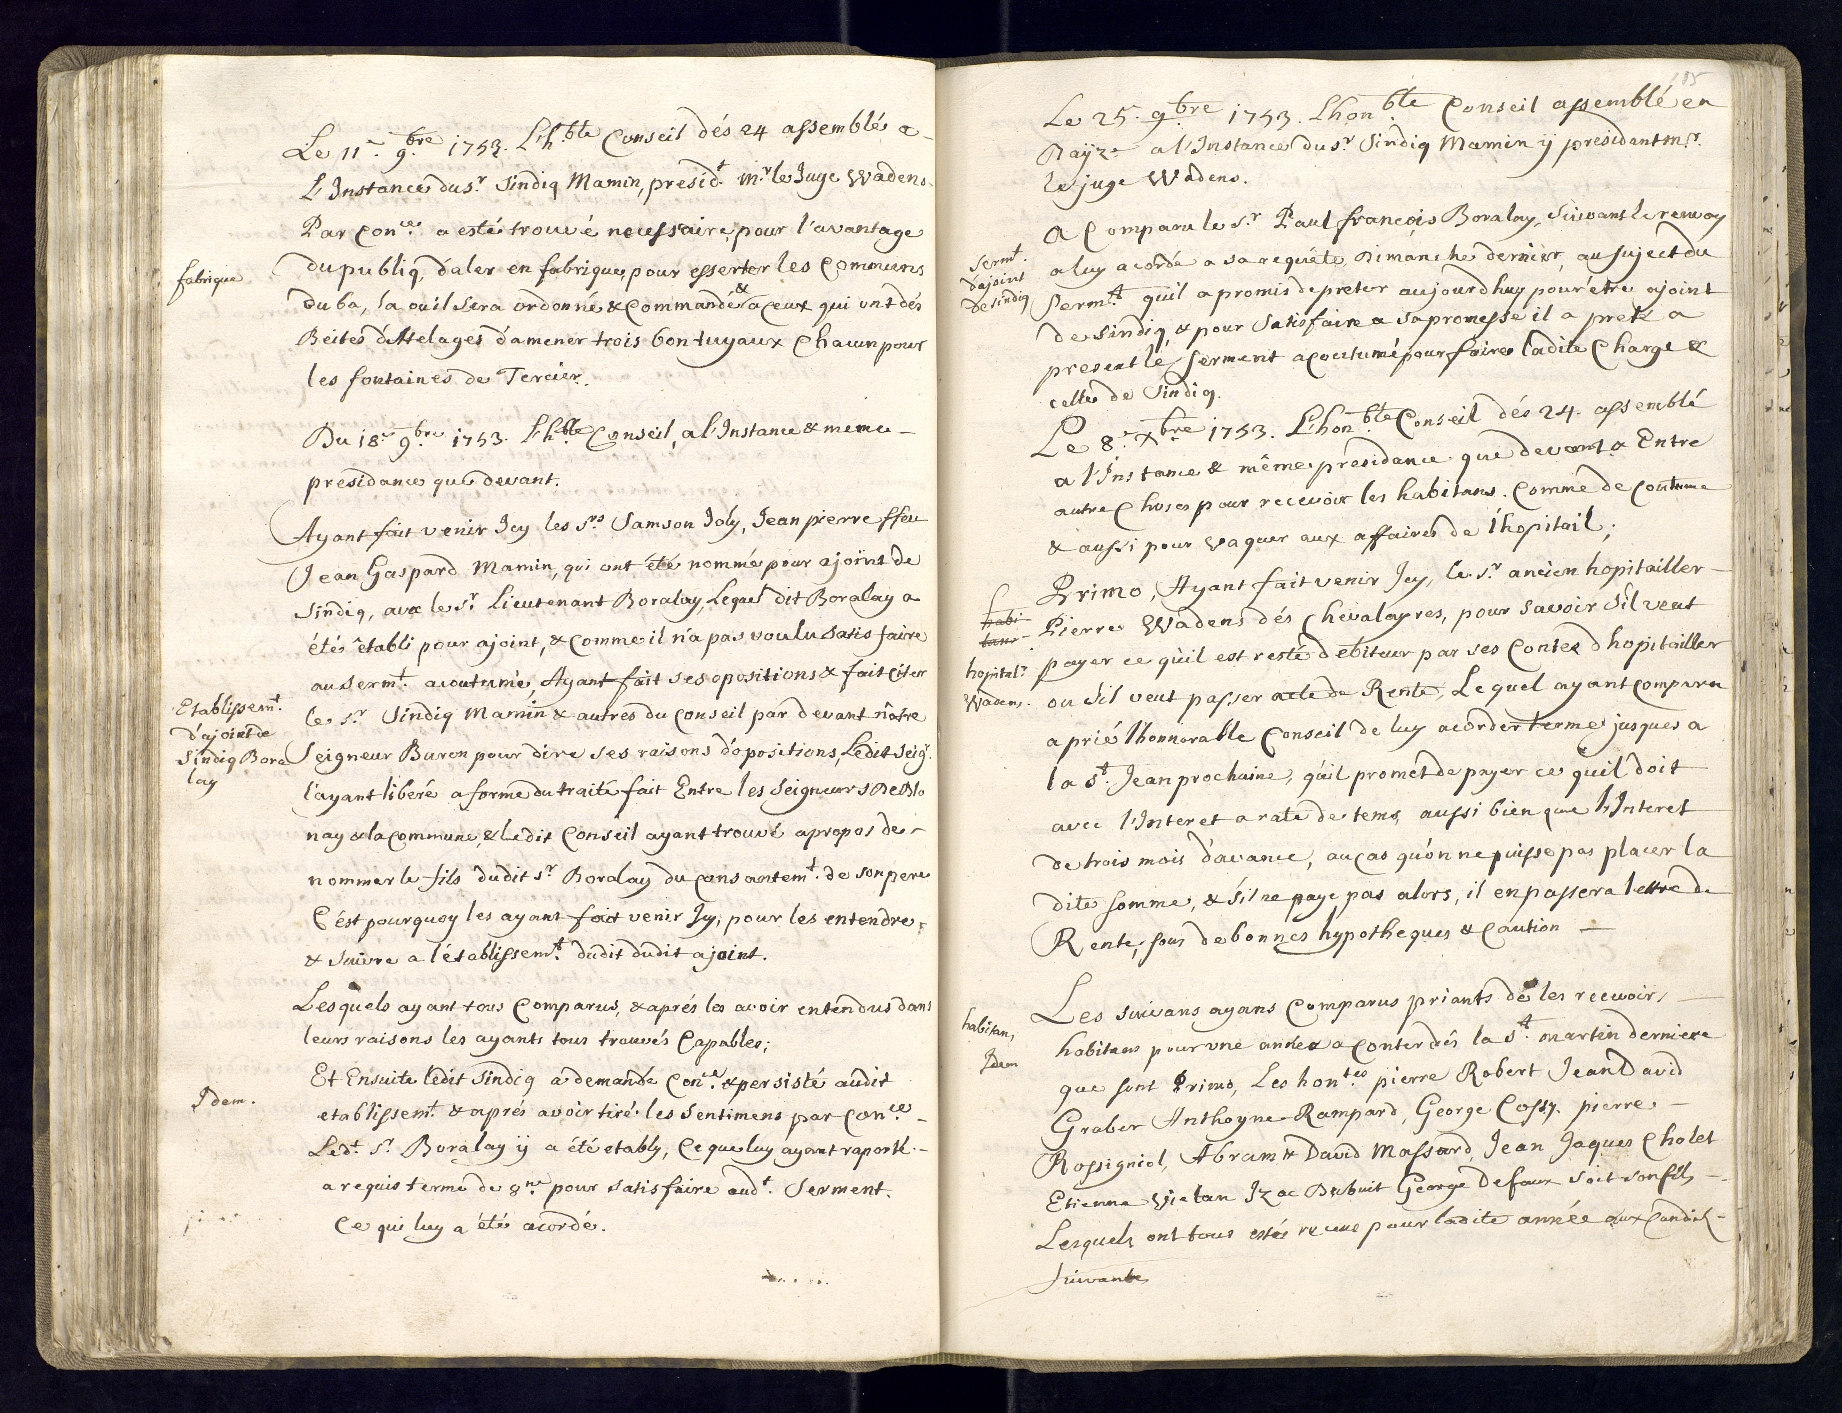 Le 11e. 9bre 1753. L'h.ble Conseil dés 24 assemblés a
L'Instance du sr. Sindiq Mamin, presid.t mr. le Juge Wadens.
Par Con.ce a esté trouvé necessaire, pour l'avantage
fabrique
du publiq, d'aler en fabrique, pour esserter les Communs
du ba, la ou il sera ordonné & Commandé & a Ceux qui ont dés
Beites d'Attelages d'amener trois bon tuyaux Chacun pour
les fontaines de Tercier.
Du 18e 9bre 1753. L'h.ble Conseil, a l'Instance & meme
presidance que devant.
Ayant fait venir Icy les srs Samson Joly, Jean pierre ffeu
Jean Gaspard Mamin, qui ont été nommé pour ajoint de
Sindiq, avec le sr. Lieutenant Boralay, Lequel dit Boralay a
été établi pour ajoint, & comme il n'a pas voulu satisfaire
au serm.t acoutumé, Ayant fait ses opositions & fait citer
Etablissem.t
d'ajoint de
Sindiq Bora
lay
le sr. Sindiq Mamin & autres du Conseil par devant nôtre
Seigneur Baron pour dire ses raisons d'opositions, Ledit Seigr.
l'ayant libéré a forme du traité fait Entre les Seigneurs De Blo
nay & la Commune, & Ledit Conseil ayant trouvé apropos de
nommer le fils dudit sr. Boralay du consantem.t de son pere
C'ést pourquoy les ayant fait venir Icy, pour les entendre,
& suivre a l'établissem.t dudit dudit ajoint.
Lesquels ayant tous Comparus, & aprés les avoir entendus dans
leurs raisons les ayants tous trouvés Capables;
Et Ensuite ledit Sindiq a demandé Con.ce & persisté audit
Idem.
etablissem.t & aprés avoir tiré les sentimens par Con.ce
Led.t sr. Boralay ÿ a été etably, Ce que luy ayant raporté
a requis terme de 8ne pour satisfaire aud.t Serment.
Ce qui luy a été acordé.
185
Le 25e. 9bre 1753. L'hon.ble Conseil assemblé en
a l'Instance du sr. Sindiq Mamin ÿ president mr.
le juge Wadens.
A Comparu le sr. Paul françois Boralay, suivant le renvoy
Serm.t
d'ajoint
de sindiq
a luy acordé a sa requête Dimanche dernier, au suject du
Serm.t qu'il a promis de preter aujourdhuy pour être ajoint
de sindiq, & pour satisfaire a sa promesse il a preté a
present le serment acoutumé pour faire ladite Charge &
celle de Sindiq.
Le 8e. Xbre 1753. L'hon.ble Conseil dés 24. assemblé
a l'Instance & même presidance que devant a Entre
autre Choses pour recevoir les habitans. Comme de coutume
& aussi pour vaquer aux affaires de l'hopitail;
Primo, Ayant fait venir Icy, le sr. ancien hopitailler
habi
tans
hopital.r
Wadens.
Pierre Wadens dés Chevalayres, pour savoir s'il veut
payer ce qu'il est resté débiteur par ses Contes d'hopitailler
ou s'il veut passer acte de Rente, Lequel ayant comparu
a prié l'honnorable Conseil de luy acorder terme jusques a
la st. Jean prochaine, qu'il promet de payer ce qu'il doit
avec l'Interet a rate de tems, aussi bien que l'Interet
de trois mois d'avance, au cas qu'on ne puisse pas placer la
dite somme, & s'il ne paye pas alors, il en passera lettre de
Rente, sous de bonnes hypotheques & Caution
Les suivans ayans Comparus priants de les recevoir,
habitans,
Idem
habitans pour une année a conter dés la st. martin derniere
que sont Primo, Les hon.tes pierre Robert Jean David
Graber Anthoyne Rampard, George Cossy. pierre
Rossigniol, Abram & David Massard, Jean Jaques Cholet
Etienne Vielan Izac Dubuit George Defour soit son fils
Lesquels ont tous estés receus pour ladite année aux Condit.
suivante